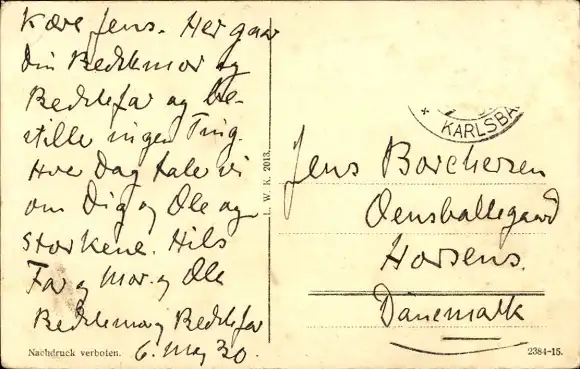 Kære Jens. Her gaar
din Bedstemor og
Bedstefar og be-
stille ingen Ting.
Hver Dag tale vi
om Dig og Ole og
Storkene. Hils
Far og Mor og Ole
Bedstemor og Bedstefar
6. Maj 30.
L. W. K. 2013.
* KARLSBA
Jens Borchersen
Oensballegaard
Horsens.
Danemark
Nachdruck verboten.
2384-15.